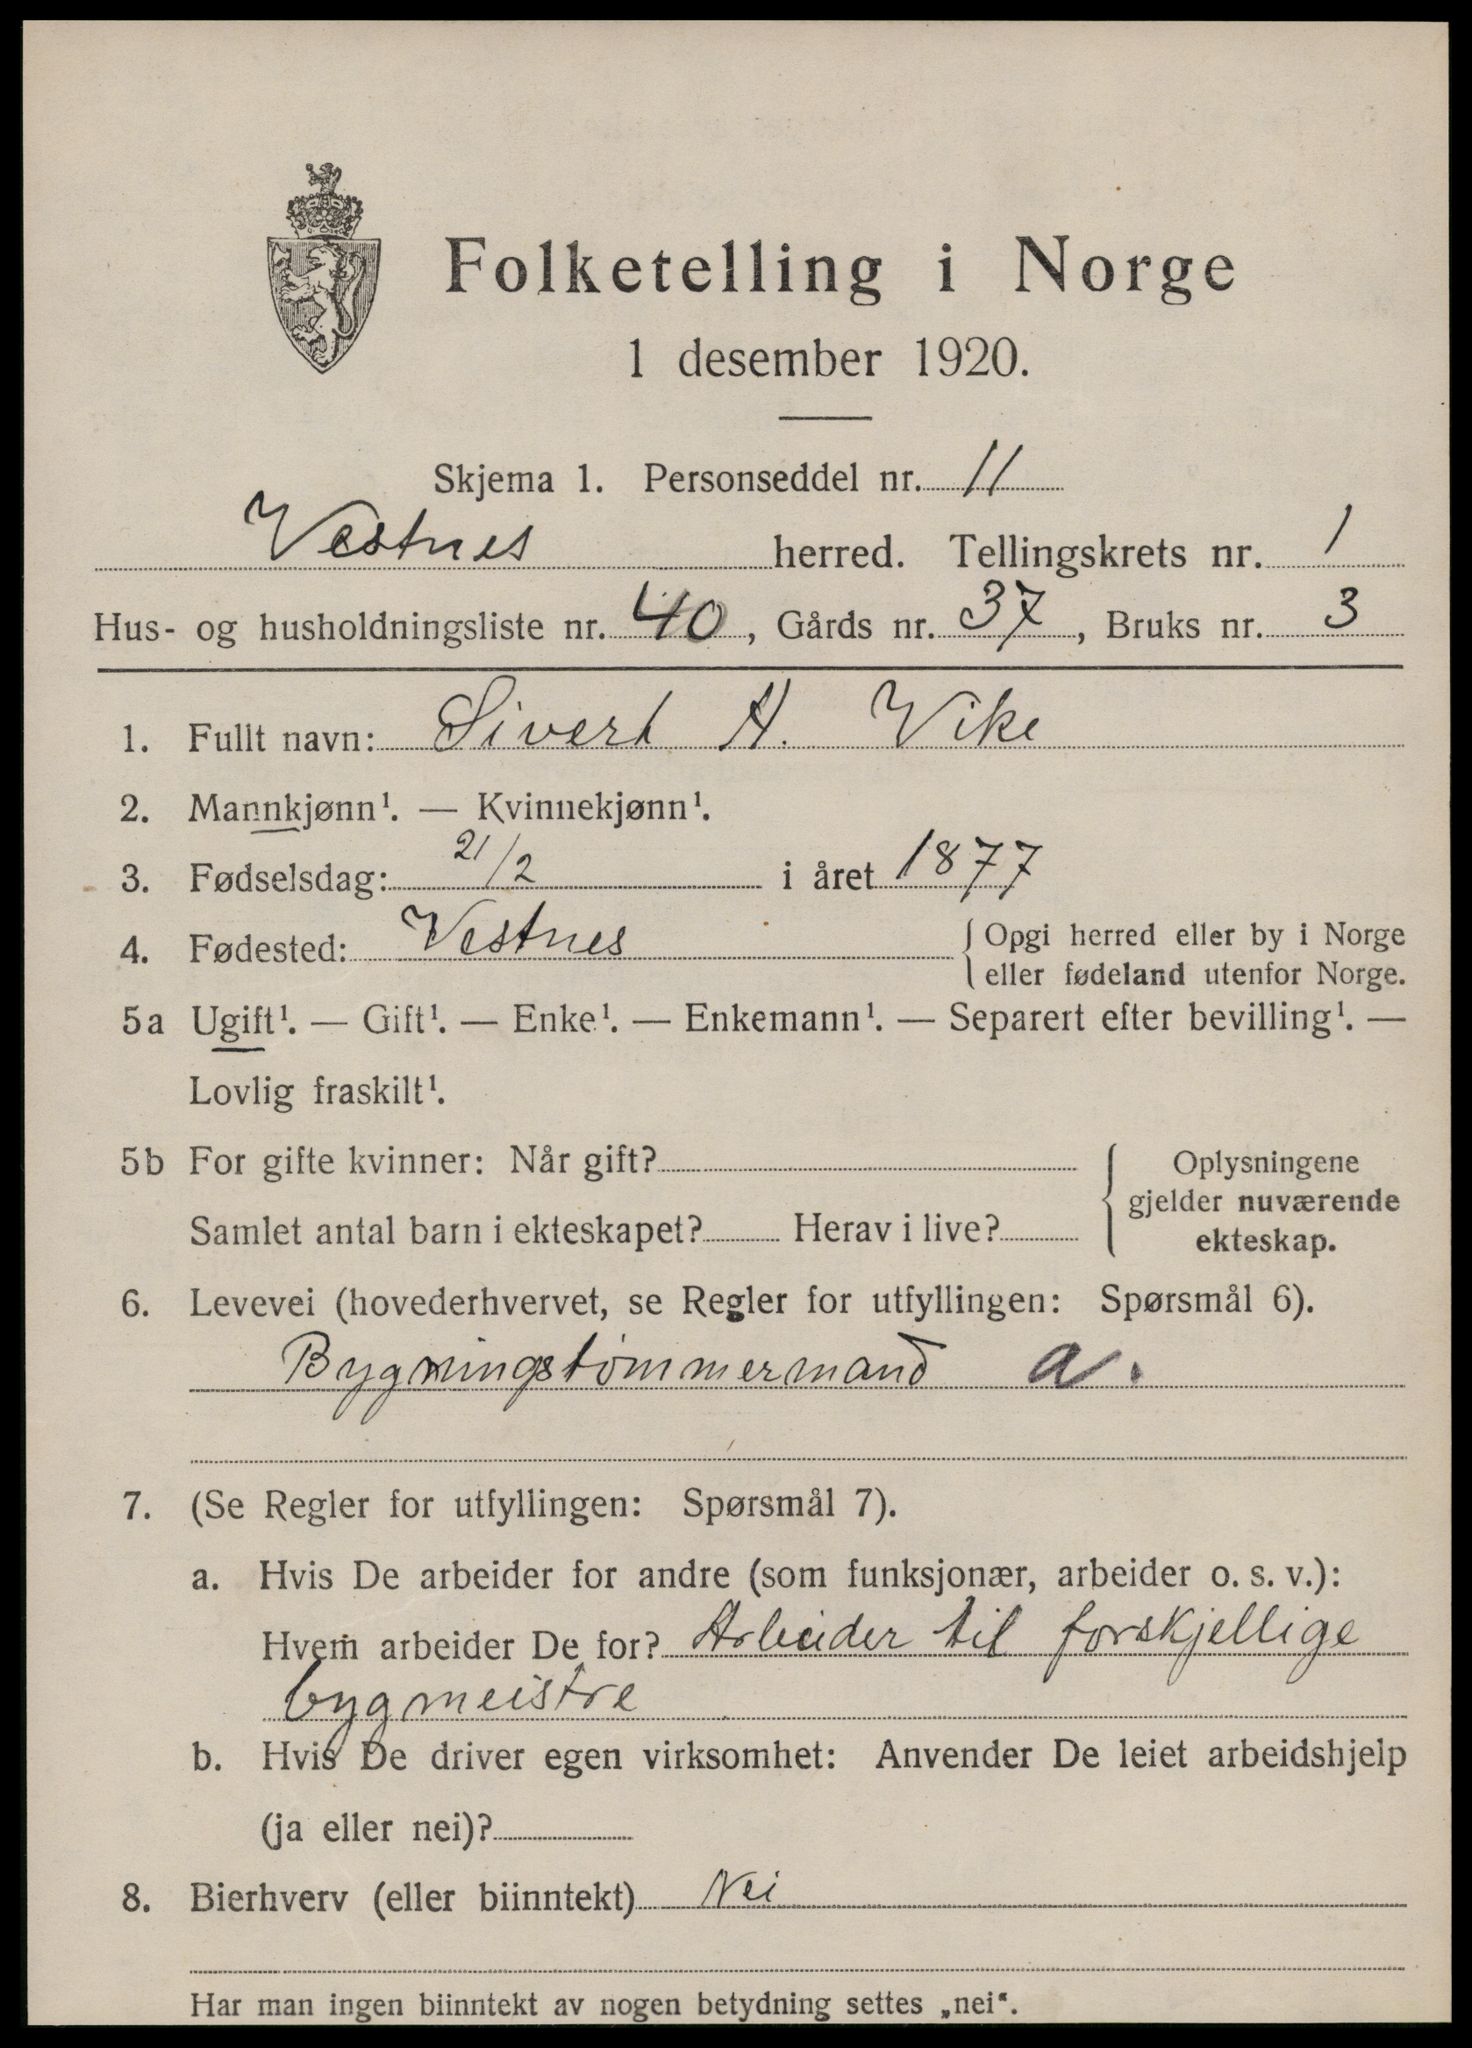 Folketelling i Norge
1 desember 1920.
Skjema 1. Personseddel nr. 11
Vestnes herred. Tellingskrets nr. 1
Hus- og husholdningsliste nr. 40, Gårds nr. 37, Bruks nr. 3
1. Fullt navn: Sivert A. Vike
2. Mannkjønn¹. — Kvinnekjønn¹.
3. Fødselsdag: 21/2 i året 1877
4. Fødested: Vestnes { Opgi herred eller by i Norge
eller fødeland utenfor Norge.
5a Ugift¹. — Gift¹. — Enke¹. — Enkemann¹. — Separert efter bevilling¹. —
Lovlig fraskilt¹.
5b For gifte kvinner: Når gift?
Samlet antal barn i ekteskapet? Herav i live?
Oplysningene
gjelder nuværende
ekteskap.
6. Levevei (hovederhvervet, se Regler for utfyllingen: Spørsmål 6).
Bygningstømmermand a.
7. (Se Regler for utfyllingen: Spørsmål 7).
a. Hvis De arbeider for andre (som funksjonær, arbeider o. s. v.):
Hvem arbeider De for? Arbeider til forskjellige
bygmeistre
b. Hvis De driver egen virksomhet: Anvender De leiet arbeidshjelp
(ja eller nei)?
8. Bierhverv (eller biinntekt) Nei
Har man ingen biinntekt av nogen betydning settes „nei“.